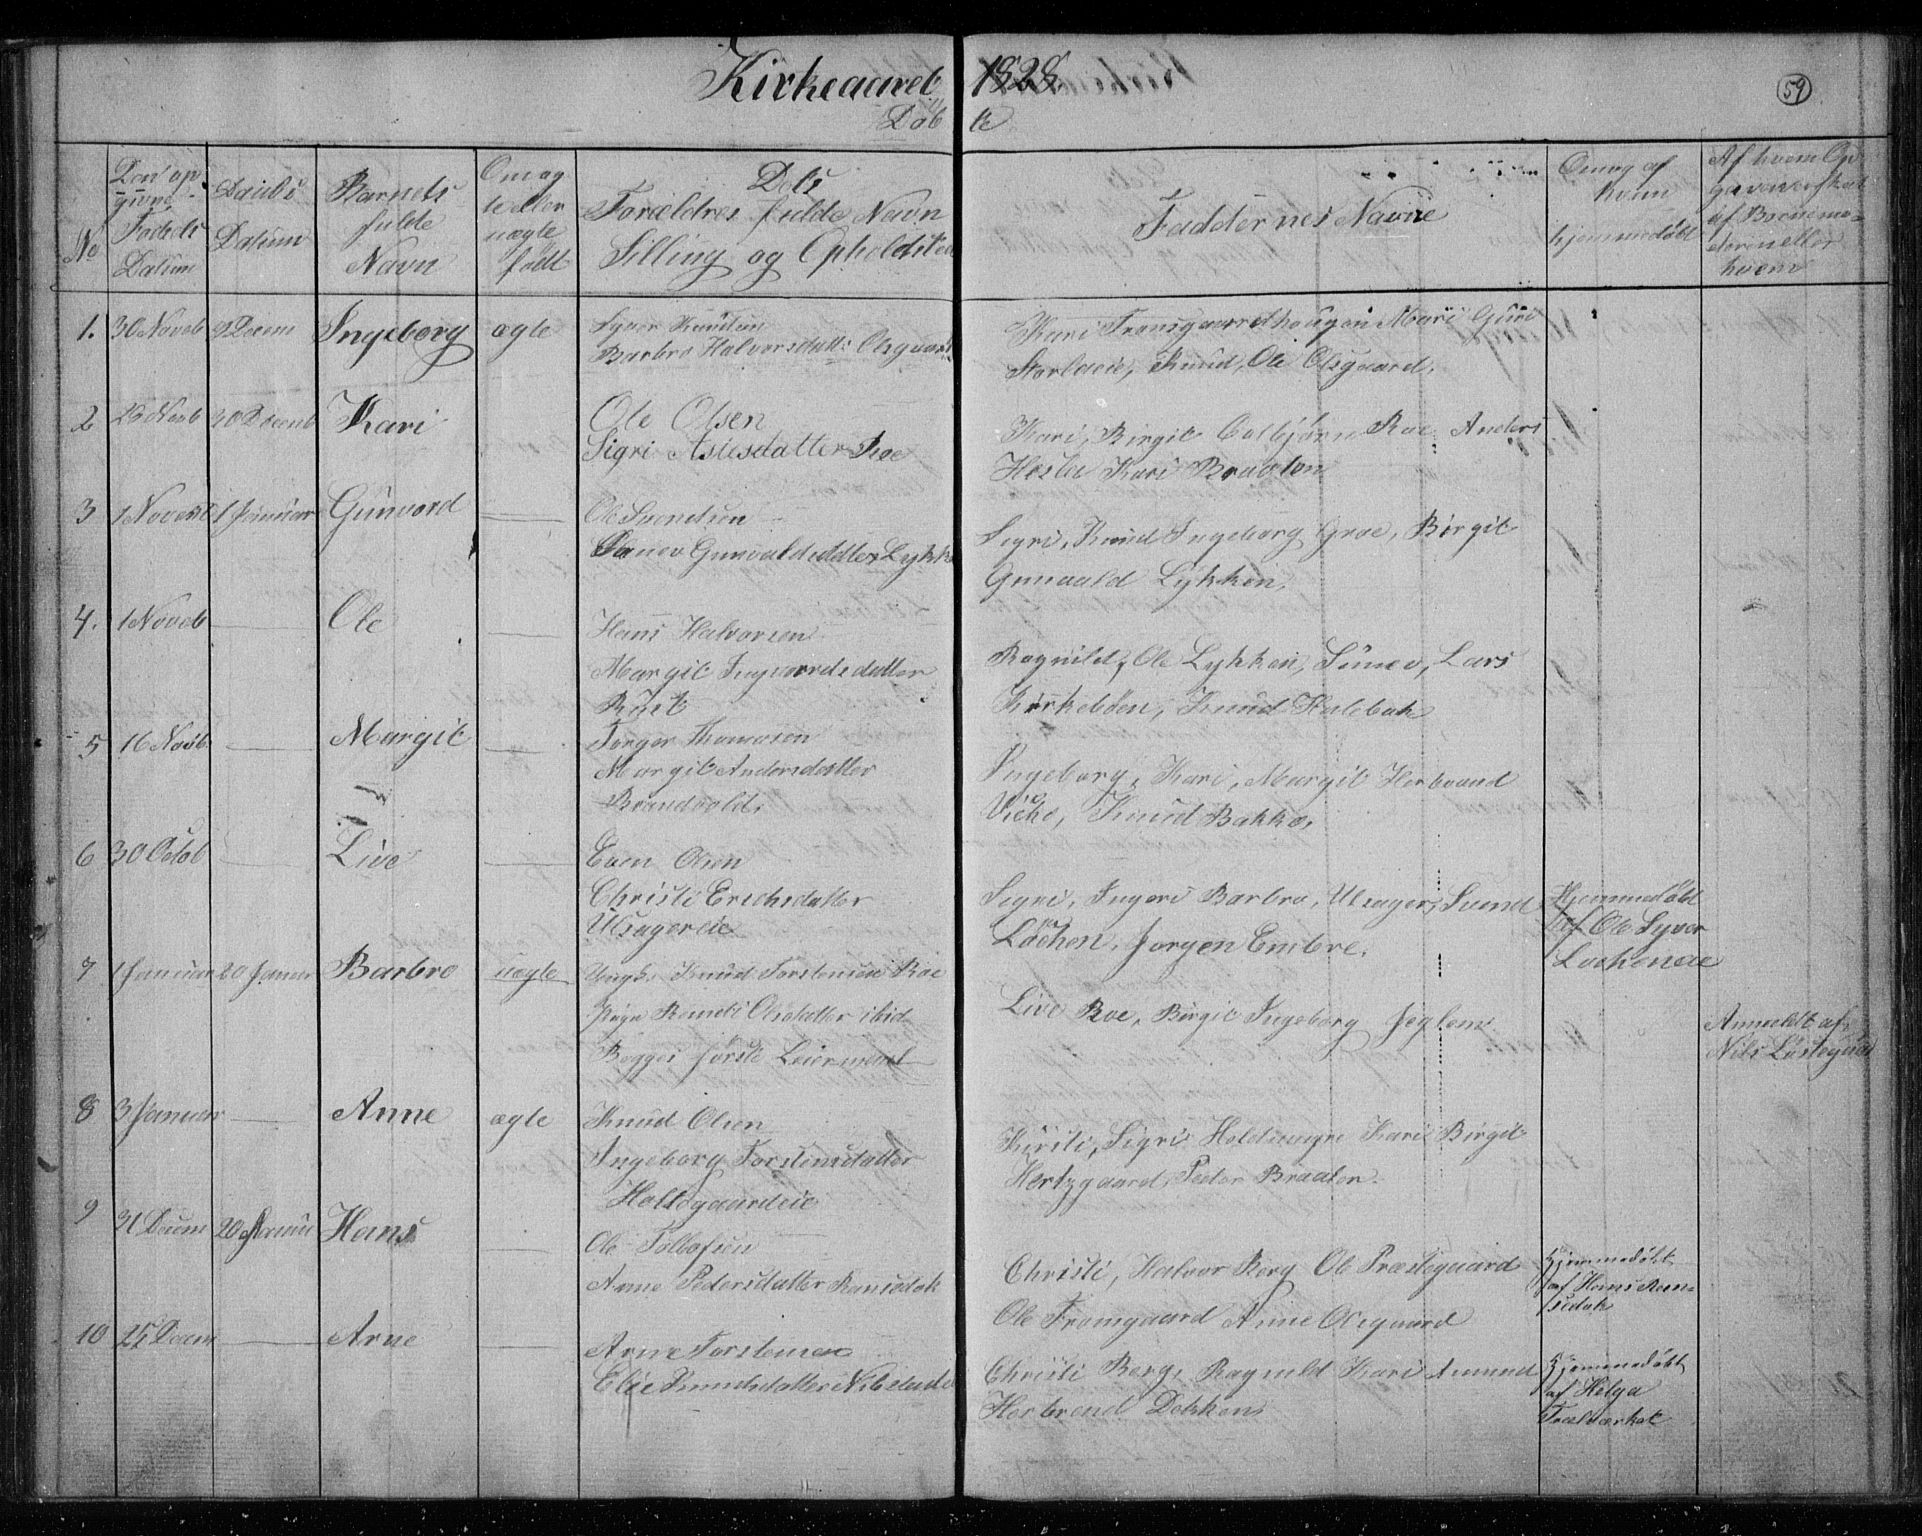 Kirkeaaret 1828
59
Døbte
No
Den opgivne Føðsels Datum
Daabs Datum
Barnets fulde Navn
Om ægte eller uægte født
Dets Forældres fulde Navn Stilling og Opholdsted
Faddernes Navne
Om og af hvem hjemmedøbt
Af hvem
1. 30 Noveb 9 Decem Ingeborg ægte
Syver Knudsen
Barbro Halvorsdatt: Olsgaard
Kari Tronsgaardhougen Mari Guri
Knud, Ole Olsgaard,
2 23 Novb 30 Decemb Kari
Ole Olsen
Sigri Aslesdatter Roe
Kari, Birgit Colbjørn Roe Anders
Kari Braaten
3 1 Novemb 1 Januar Gunvord
Ole Svendsen
Gunvaldsdatter Lykke
Sigri, Knud Ingeborg Groe, Birgit
Gunvald Lykken,
4. 1 Noveb Ole
Hans Halvorsen
Margit Ingvordsdatter
Rust
Ragnild, Ole Lykken, Sünev, Lars
Knud Halebak
5 16 Novb Margit
Torger Thomasen
Margit Andersdatter
Brandvold,
Ingeborg, Kari, Margit Herbrand
Knud Bakke,
6 30 Octob Live
Even Olsen
Christi Erichsdatter
Ulsagereie
Sigri, Ingeri Barbro, Ulsager, Svend
Løchen, Jørgen Embre.
Hjemmedøbt
af Ole Syver
7 1 Januar 20 Januar Barbro uægte
Ungk. Knud Torstensen Roe
Pige Olsdatter ibid
Begges første Leiermaal
Live Roe, Birgit Ingeborg
Anmeldt af
Nils
8 3 Januar Anne ægte
Knud Olsen
Ingeborg Torstensdatter
Holtsgaardeie
Kirsti, Sigri Kari Birgit
Hertzgaard, Peder Braaten.
9 31 Decem 20 Januar Hans
Ole Tollefsen
Anne Pedersdatter Ramsdok
Christi, Halvor Berg Ole Præstegaard
Ole Tromgaard Anne Olsgaard
Hjemmedøbt
af Hans
10 25 Decem Arne
Arne Torstensen
Knudsdatter
Christi Berg, Ragnild Kari Amund
Herbrend Dokken
Hjemmedøbt
af Helga